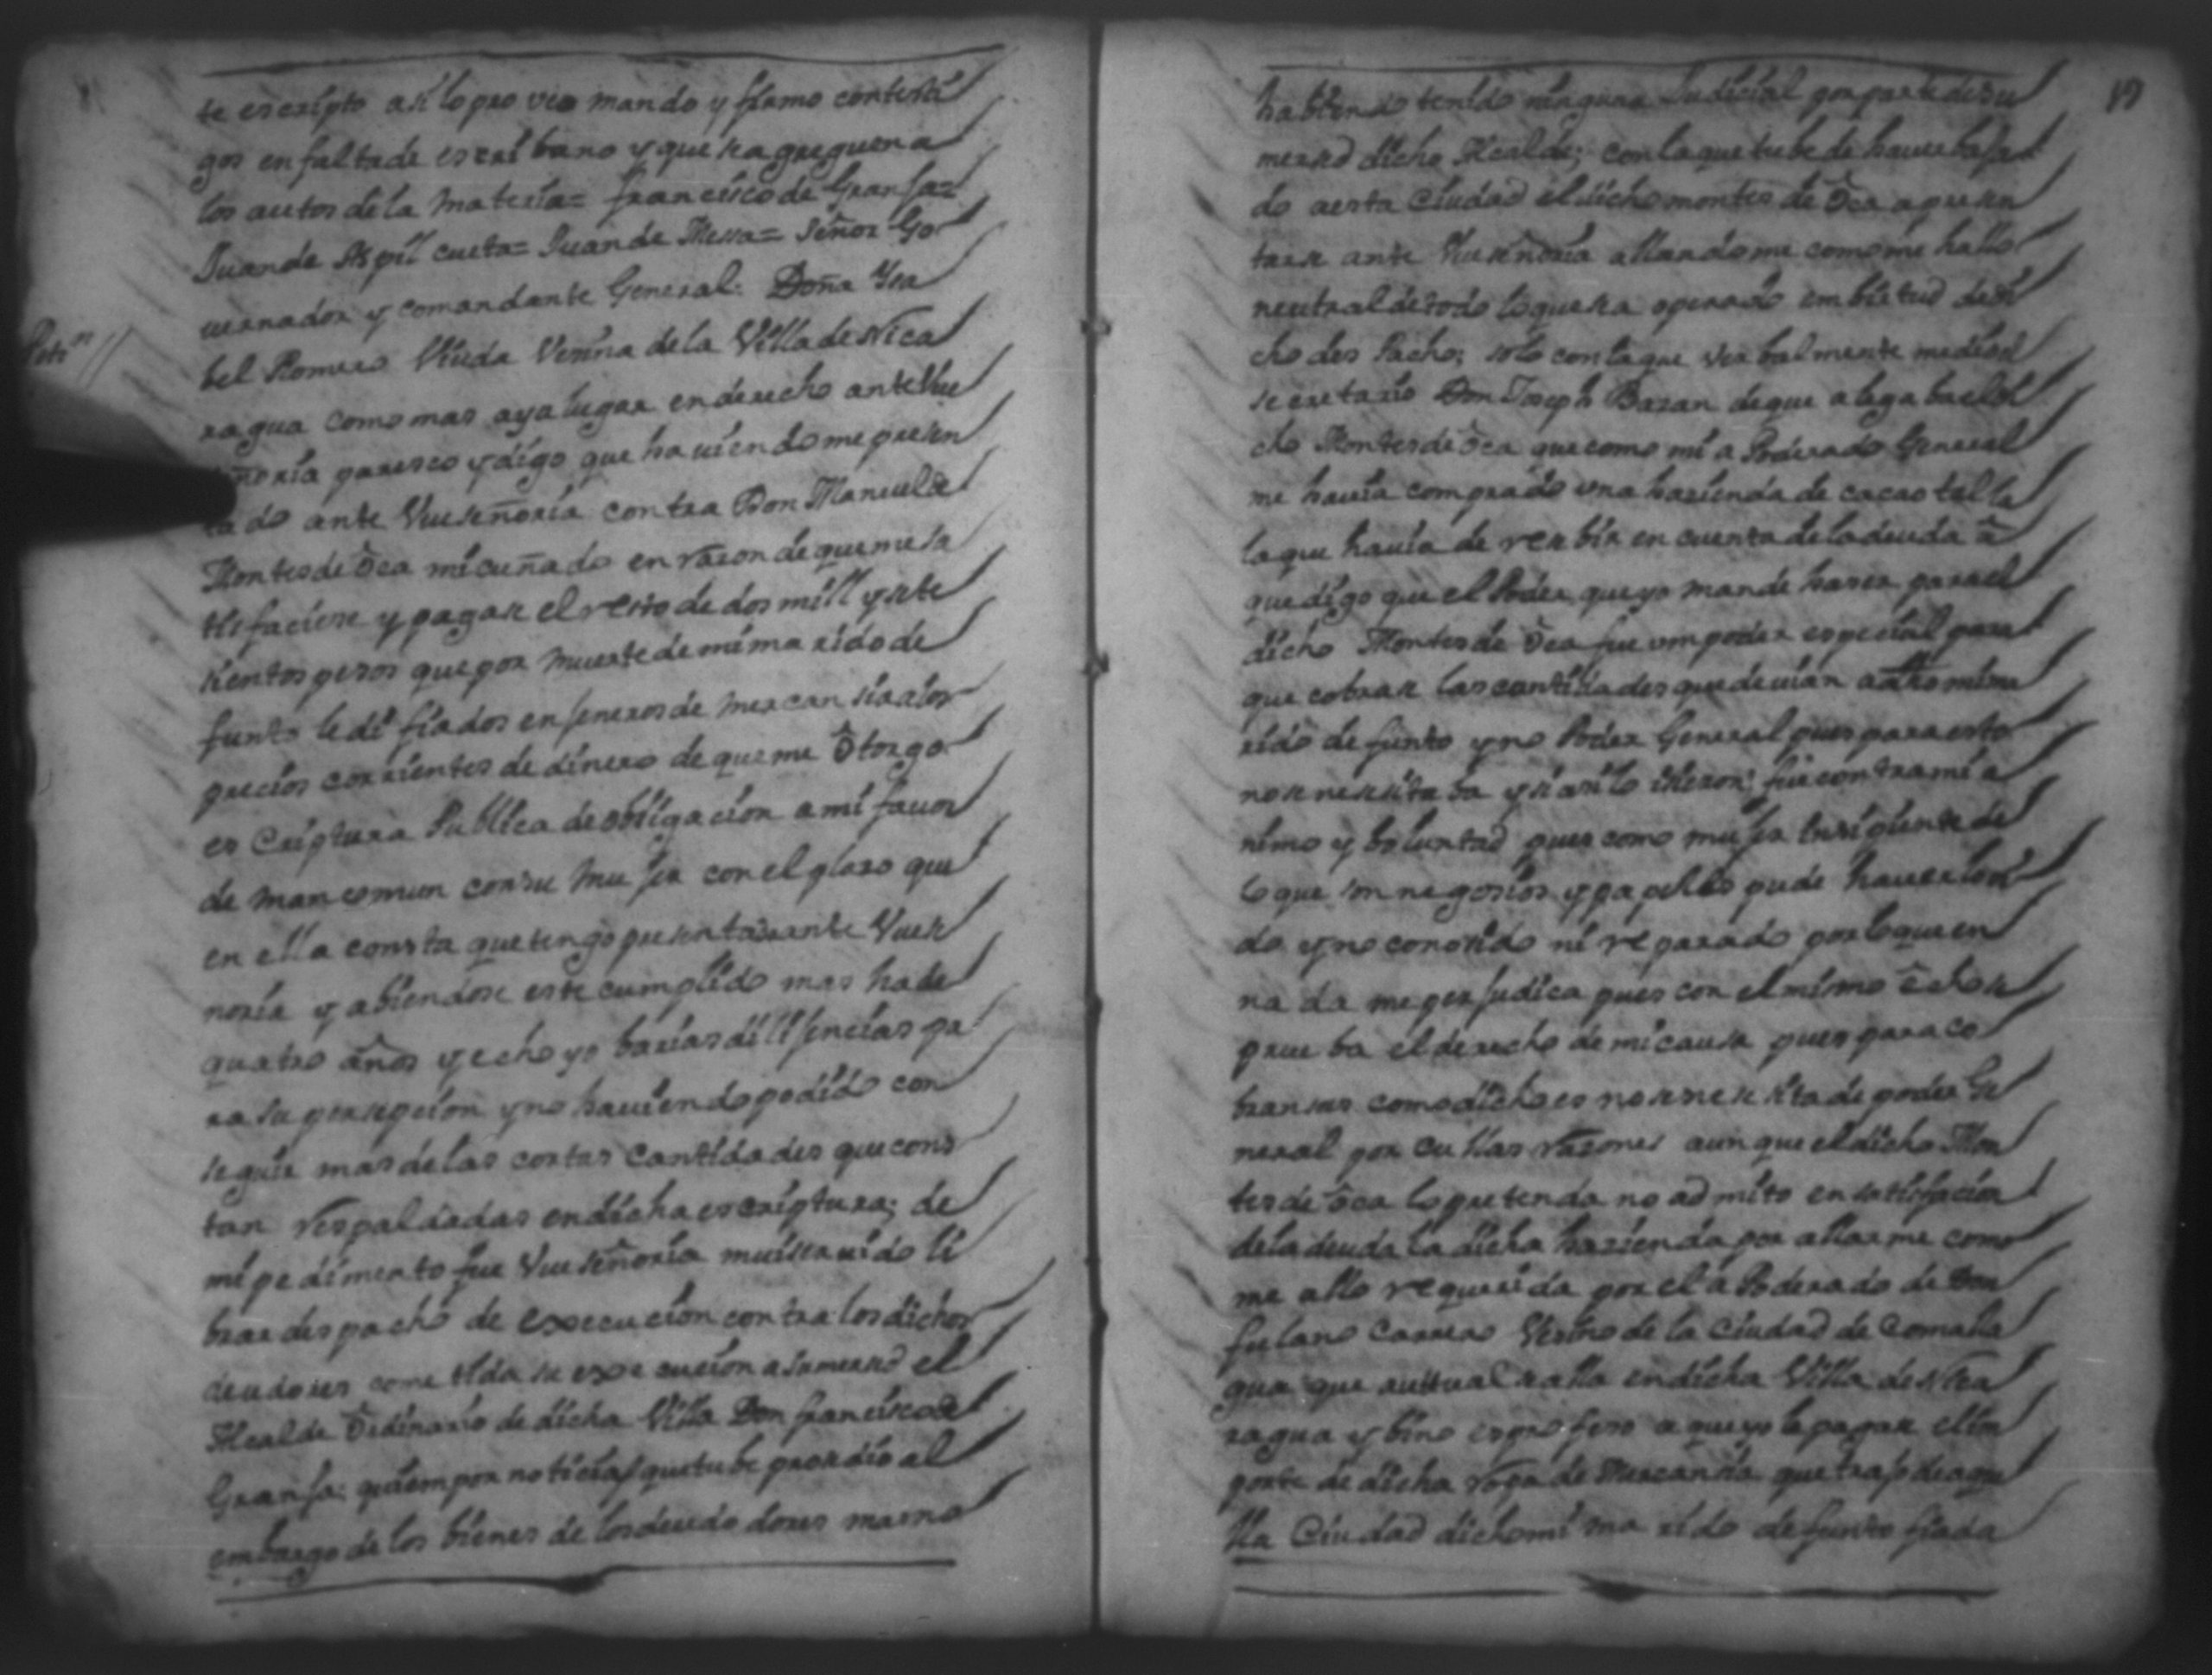 te escripto asi lo pro veo mando y firmo con testi
gos en falta de escri bano y que se agreguen a
los autos de la materia= francisco de Granja=
Juan de Aspil cueta= Juan de Messa= Señor Go
uernador y comandante General. Doña Ysa
Peti.ⁿ //
bel Romero Viuda Vesina de la Villa de Nica
ragua como mas aya lugar en derecho ante Vue
ñoria paresco y digo que hauiendome presen
tado ante Vueseñoria contra Don Manuel de
Montes de Oca mi cuñado en rason de que me sa
tisfaciese y pagase el resto de dos mill y siete
sientos pesos que por muerte de mi marido de
funto le di fiados en jeneros de mercansia a los
precios corrientes de dinero de que me ôtorgo
es Criptura Publica de obligacion a mi fauor
de mancomun con su mujer con el plaso que
en ella consta que tengo presentada ante Vuese
noria y abiendose este cumplido mas ha de
quatro años y echo yo barias dilijencias pa
ra su persepcion y no hauiendo podido con
seguir mas de las cortas cantidades que cons
tan respaldadas en dicha escriptura; de
mi pedimento fue Vueseñoria mui seruido li
brar despacho de execucion contra los dichos
deudores cometida su exe cucion a su merced el
Alcalde Ordinario de dicha Villa Don francisco de
Granja: quien por noticias que tube prosedio al
embargo de los bienes de los deudo dores mas no
19
habiendo tenido ninguna Judicial por parte de su
merced dicho Alcalde; con la que tube de hauer baja
do a esta Ciudad el dicho montes de Oca a presen
tarse ante Vueseñoria allandome como me hallo
neutral de todo lo que se a operado em birtud de di
cho des Pacho; solo con la que verbalmente me dio el
secretario Don Joseph Bazan de que alegaba el di
cho Montes de oca que como mi a Poderado General
me hauia comprado una hazienda de cacao tal la
la que hauia de resebir en cuenta de la deuda â
que digo que el Poder que yo mande haser para el
dicho Montes de Oca fue um poder especial para
que cobrase las cantidades que deuian a dicho mi ma
rido defunto y no Poder General pues para esto
no se nesesitaba y si asi lo isieron fue contra mi a
nimo y boluntad pues como mujer insipiente de
lo que son negosios y papeles pude hauerlo oi
do y no conosido ni reparado por lo que en
nada me perjudica pues con el mismo êcho se
prueba el derecho de mi causa pues para co
bransas como dicho es no se nesesita de poder Ge
neral por cullas rasones aunque el dicho Mon
tes de oca lo pretenda no admito en satisfacion
de la deuda la dicha hazienda por allarme como
me allo requerida por el a Poderado de Don
fulano Carrero Vesino de la Ciudad de Comalla
gua que auttual se alla en dicha Villa de Nica
ragua y bino espro feso a que yo le pagase el im
porte de dicha ropa de Mercansia que trajo de aque
lla Ciudad dicho mi ma rido defunto fiada